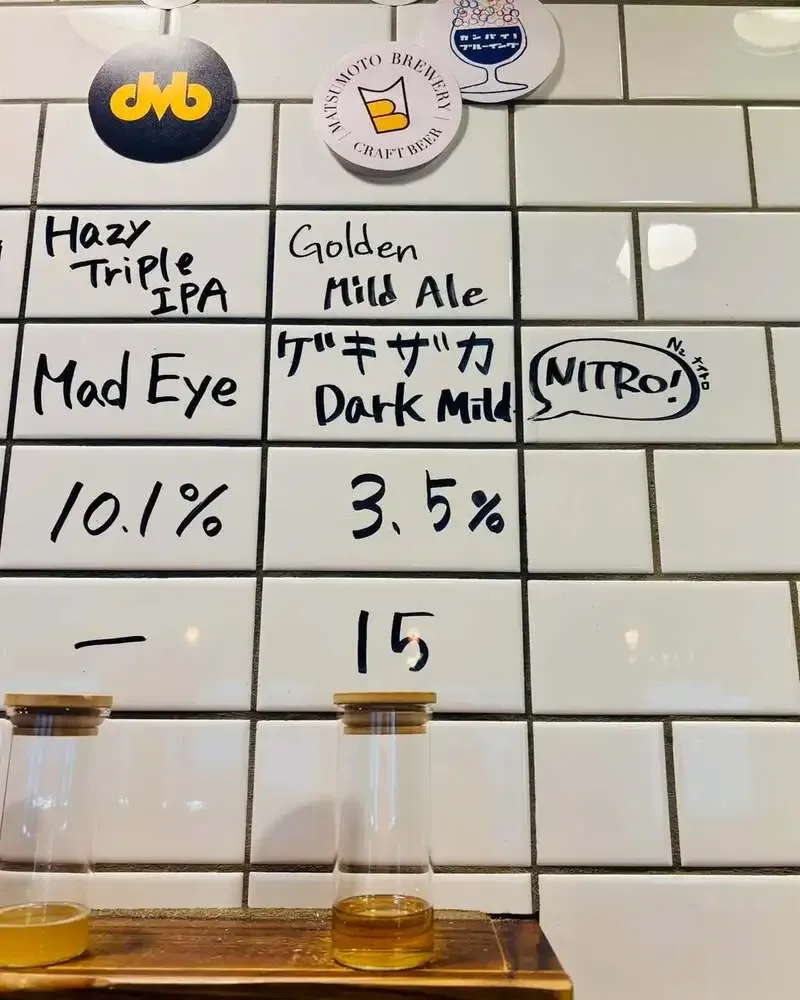 dMb
MATSUMOTO BREWERY
CRAFT BEER
カンパイ!
ブルーイング
Hazy
Triple
IPA
Golden
Mild Ale
Mad Eye
ゲキザカ
Dark Mild
NITRO!
N₂ ナイトロ
10.1%
3.5%
—
15